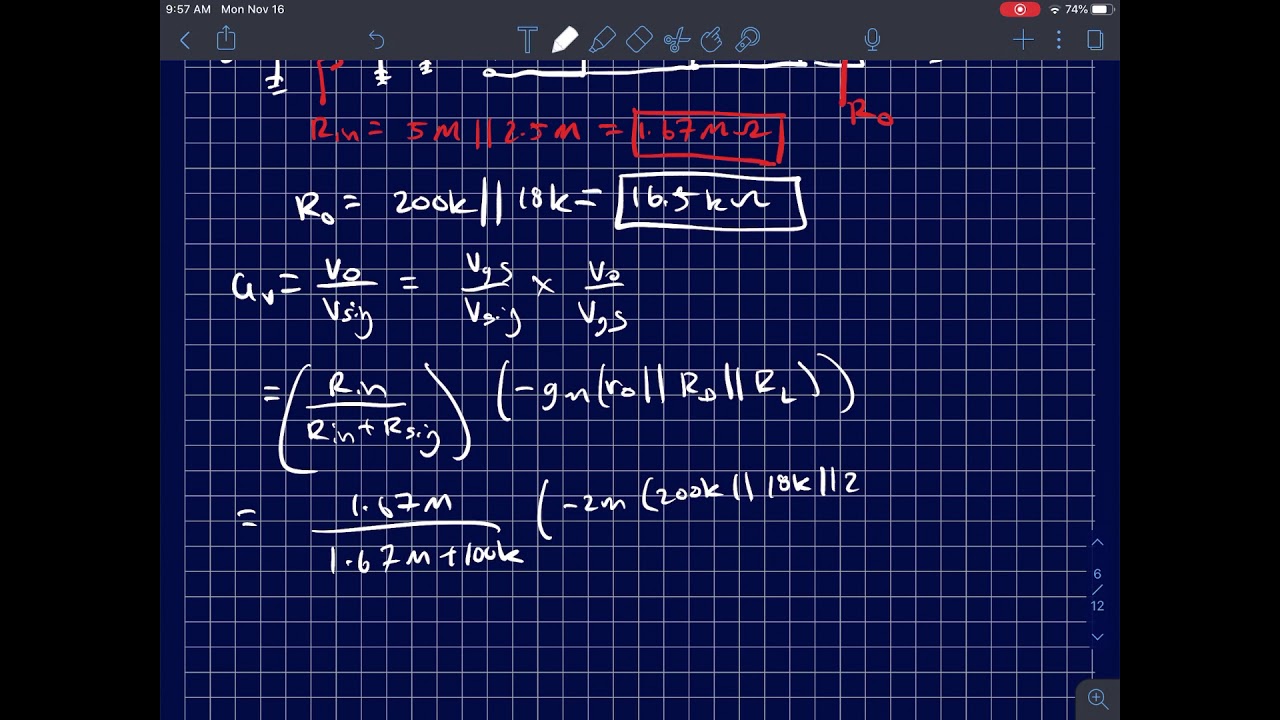 9:57 AM Mon Nov 16
74%
T
R₀
Rin = 5M || 2.5M = 1.67MΩ
R₀ = 200k || 18k = 16.5kΩ
Gv = Vo/Vsig = Vgs/Vsig × Vo/Vgs
= (Rin/(Rin + Rsig)) (-gm(ro || RD || RL))
= 1.67M/(1.67M + 100k) (-2m (200k || 18k || 2
6
/
12